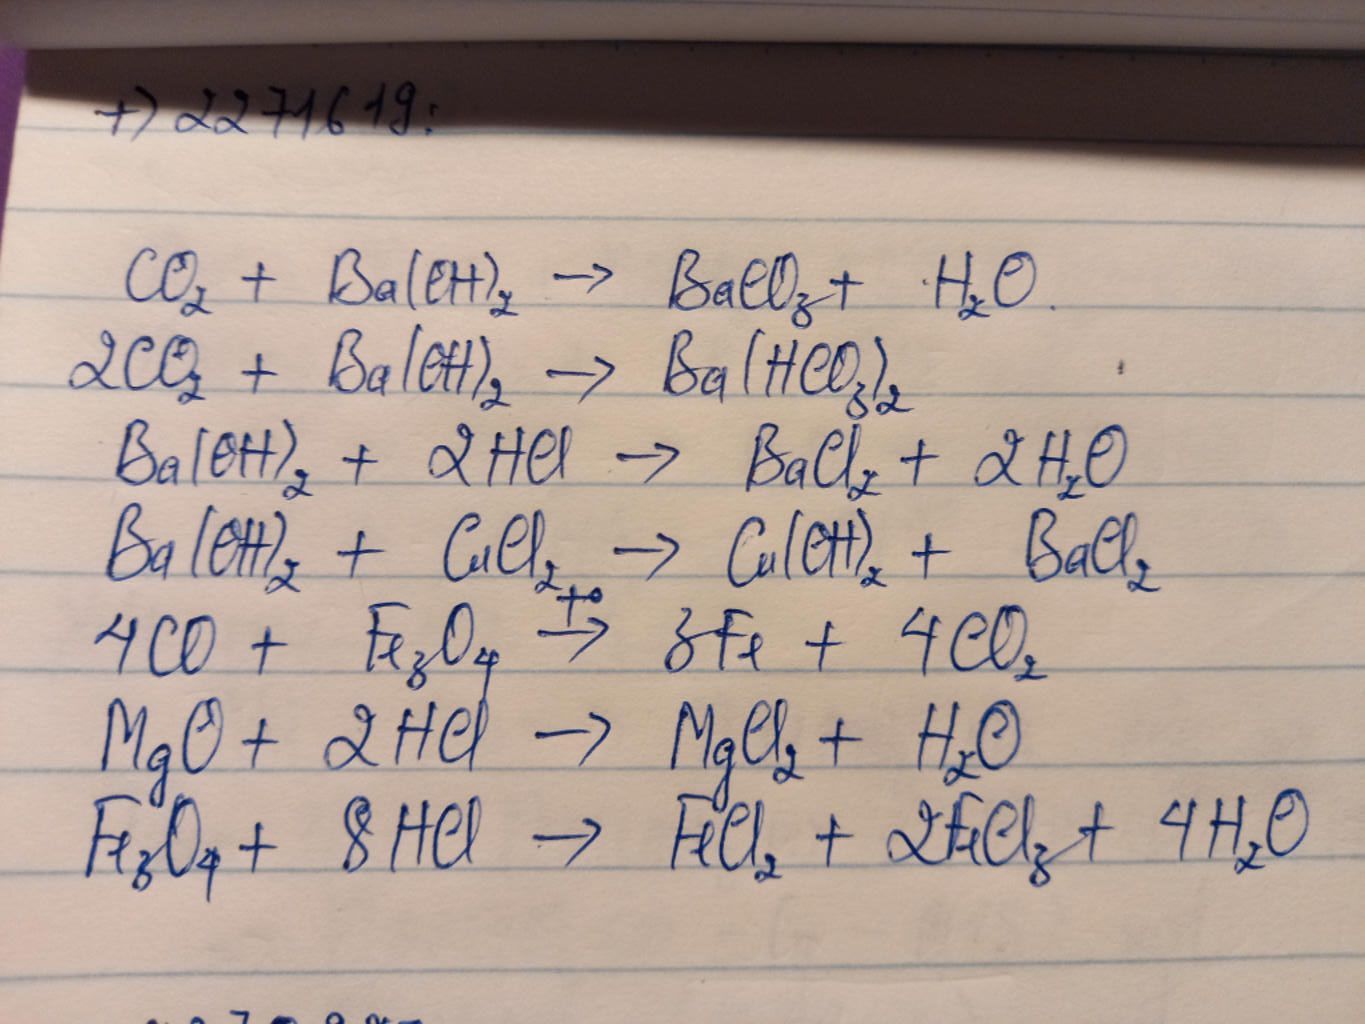 +) 2271619:
CO₂ + Ba(OH)₂ → BaCO₃ + H₂O.
2CO₂ + Ba(OH)₂ → Ba(HCO₃)₂
Ba(OH)₂ + 2HCl → BaCl₂ + 2H₂O
Ba(OH)₂ + CuCl₂ → Cu(OH)₂ + BaCl₂
4CO + Fe₃O₄ →(t°) 3Fe + 4CO₂
MgO + 2HCl → MgCl₂ + H₂O
Fe₃O₄ + 8HCl → FeCl₂ + 2FeCl₃ + 4H₂O